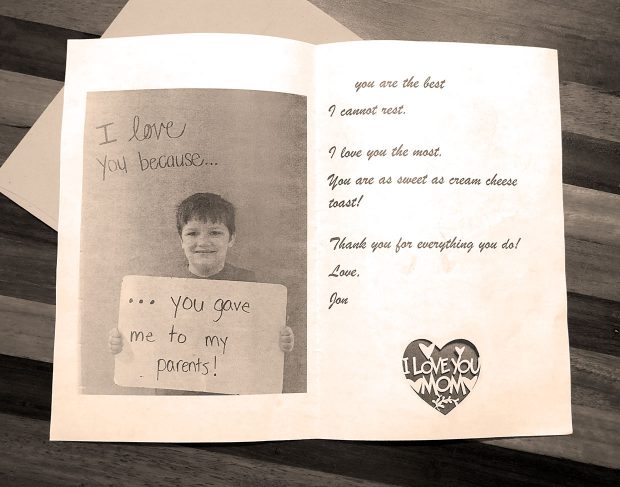 I love
you because...
... you gave
me to my
parents!
you are the best
I cannot rest.
I love you the most.
You are as sweet as cream cheese
toast!
Thank you for everything you do!
Love,
Jon
I LOVE YOU
MOM